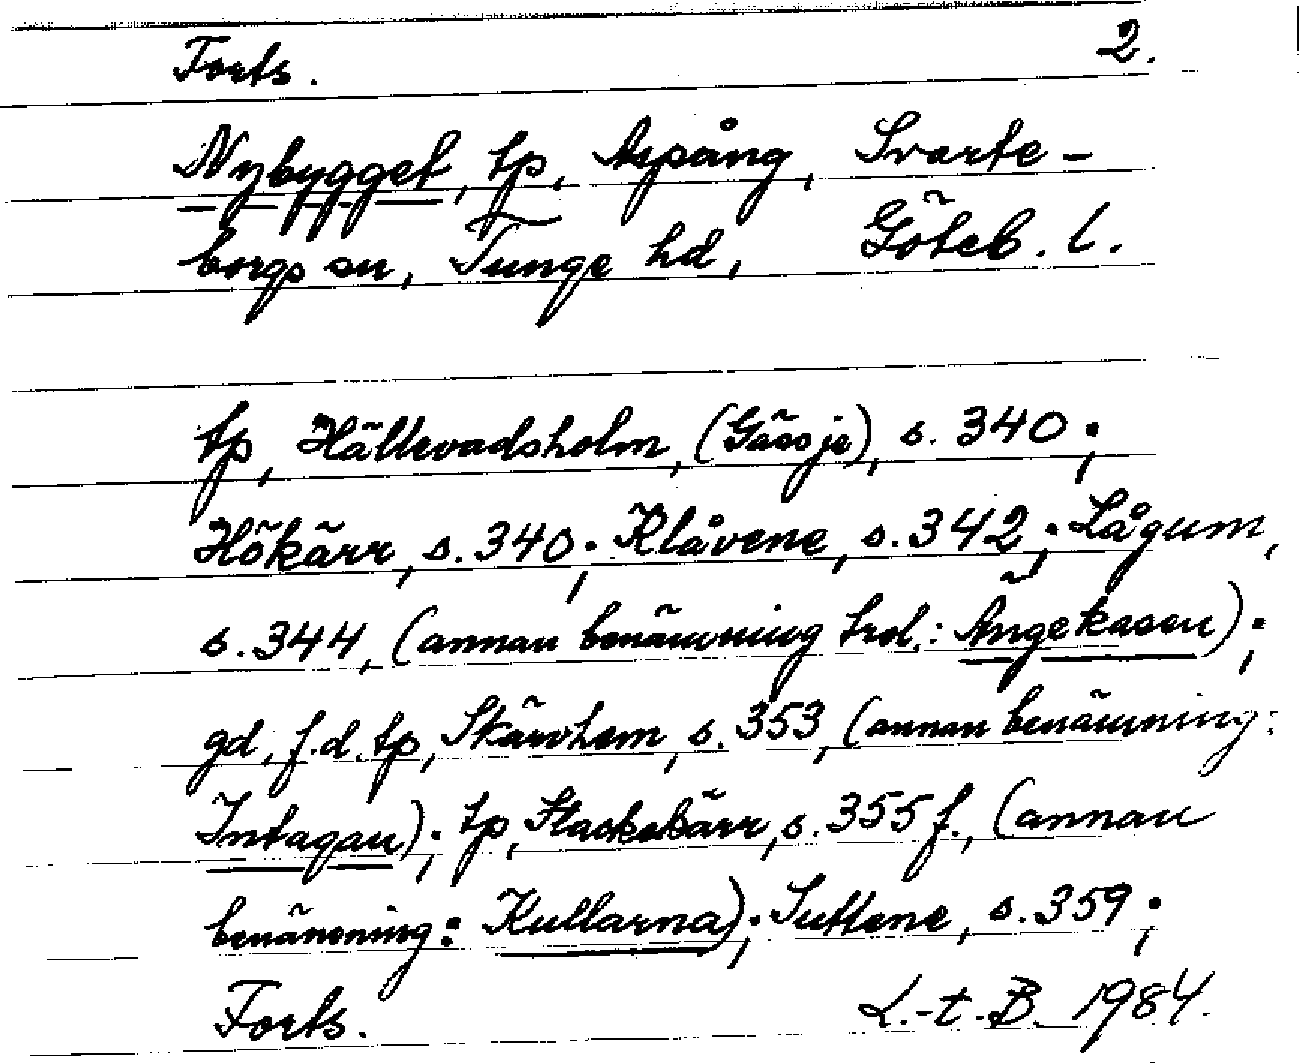 Forts. 2.
Nybygget, tp, Aspång, Svarte-
borgs sn, Tunge hd, Göteb. l.
tp, Hällevadsholm, (Gässje), s. 340;
Hökärr, s. 340; Klåvene, s. 342; Lågum,
s. 344, (annan benämning trol.: Ängekasen);
gd, f.d. tp, Skärvhem, s. 353, (annan benämning:
Intagan); tp, Stackekärr, s. 355 f., (annan
benämning: Kullarna); Suttene, s. 359;
Forts. L.-t. B. 1984.